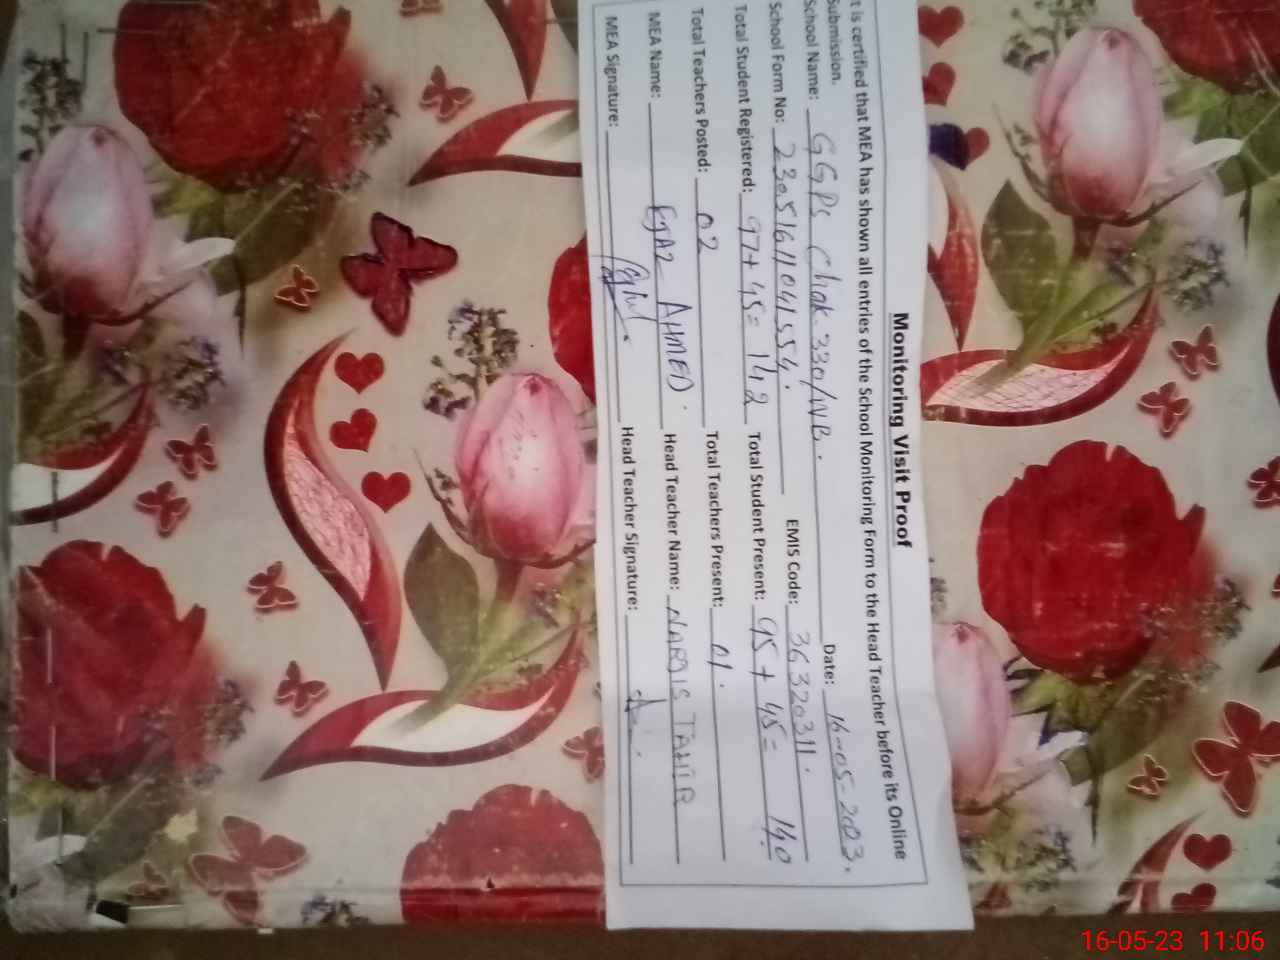 Monitoring Visit Proof
t is certified that MEA has shown all entries of the School Monitoring Form to the Head Teacher before its Online
Submission.
Date: 16-05-2023.
School Name: GGPS Chak.330/WB.
School Form No: 23051611041554. EMIS Code: 36320311.
Total Student Registered: 97+45=142 Total Student Present: 95+45= 140
Total Teachers Posted: 02 Total Teachers Present: 01.
MEA Name: AHMED. Head Teacher Name: TAHIR
MEA Signature: Head Teacher Signature:
16-05-23 11:06